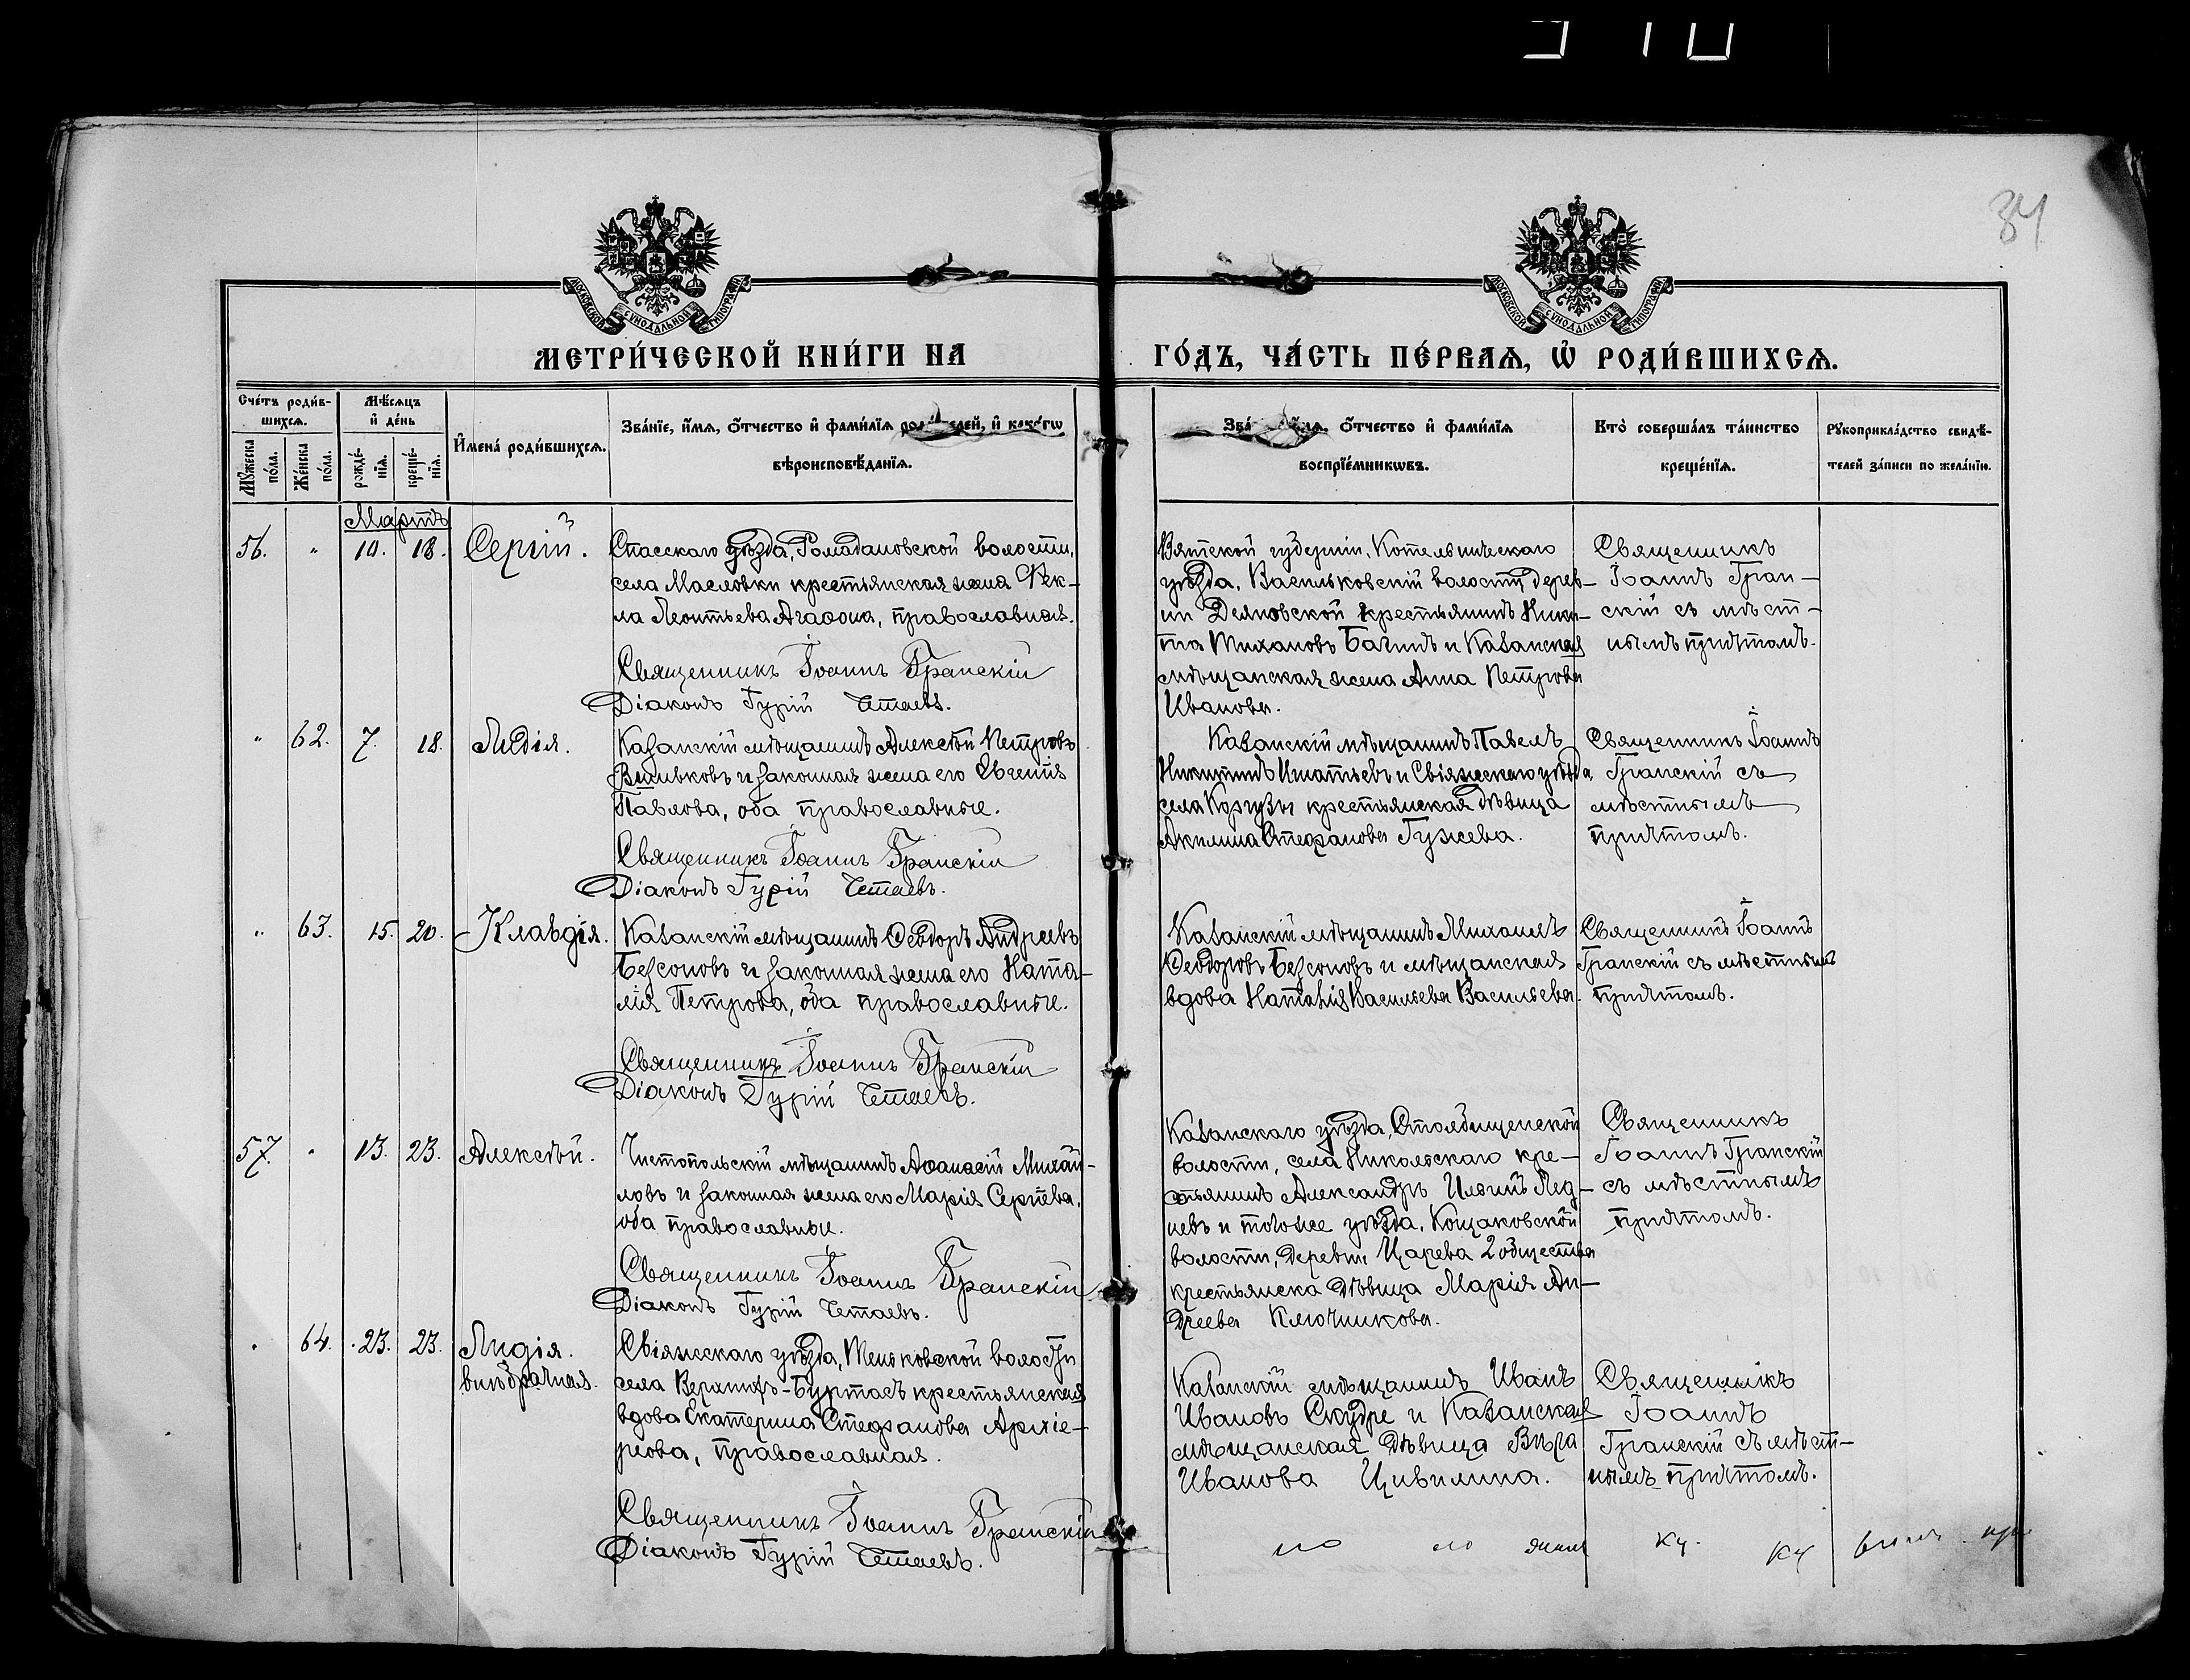 34
МОСКОВСКОЙ СѴНОДАЛЬНОЙ ТИПОГРАФІИ
МОСКОВСКОЙ СѴНОДАЛЬНОЙ ТИПОГРАФІИ
МЕТРИ́ЧЕСКОЙ КНИ́ГИ НА ГО́ДЪ, ЧА́СТЬ ПЕ́РВАѦ, Ѡ҆ РОДИ́ВШИХСѦ.
Сче́тъ роди́в-
шихсѧ.
Мꙋ́жеска
по́ла.
Же́нска
по́ла.
Мѣ́сѧцъ
и҆ де́нь
рожде́-
нїѧ.
креще́-
нїѧ.
И҆мена̀ роди́вшихсѧ.
Зва́нїе, и҆́мѧ, ѻ҆́тчество и҆ фами́лїѧ роди́телей, и҆ како́гѡ
вѣроисповѣ́данїѧ.
Зва́ и҆́мѧ, ѻ҆́тчество и҆ фами́лїѧ
воспрїе́мникѡвъ.
Кто̀ соверша́лъ та́инство
креще́нїѧ.
Рꙋкоприкла́дство свидѣ́-
телей за́писи по жела́нїю.
Мартъ
56. " 10. 18. Сергій.
Спасскаго уѣзда, Ромодановской волости,
села Масловки крестьянская жена Ѳек-
ла Леонтьева Агаѳона, православная.
Священникъ Іоаннъ Гранскій
Діаконъ Гурій Четаевъ.
Вятской губерніи, Котельническаго
уѣзда, Васильковскій волости, дерев-
ни крестьянинъ Ники-
та Тихановъ Багинъ и Казанская
мѣщанская жена Анна Петрова
Иванова.
Священникъ
Іоаннъ Гран-
скій съ мѣст-
нымъ причтомъ.
" 62. 7. 18. Лидія.
Казанскій мѣщанинъ Алексѣй Петровъ
и законная жена его Евгенія
Павлова, оба православные.
Священникъ Іоаннъ Гранскій
Діаконъ Гурій Четаевъ.
Казанскій мѣщанинъ Павелъ
Никитинъ Игнатьевъ и Свіяжскаго уѣзда,
села Коргузы крестьянская дѣвица
Акилина Стефанова Гужева.
Священникъ Іоаннъ
Гранскій съ
мѣстнымъ
причтомъ.
" 63. 15. 20. Клавдія.
Казанскій мѣщанинъ Ѳеодоръ Андреевъ
Безсоновъ и законная жена его Ната-
лія Петрова, оба православные.
Священникъ Іоаннъ Гранскій
Діаконъ Гурій Четаевъ.
Казанскій мѣщанинъ Михаилъ
Ѳеодоровъ Безсоновъ и мѣщанская
вдова Наталія Васильева Васильева.
Священникъ Іоаннъ
Гранскій съ мѣстнымъ
причтомъ.
57. " 13. 23. Алексѣй.
Чистопольскій мѣщанинъ Аѳанасій Михай-
ловъ и законная жена его Марія Сергѣева,
оба православные.
Священникъ Іоаннъ Гранскій
Діаконъ Гурій Четаевъ.
Казанскаго уѣзда, Столбищенской
волости, села Никольскаго кре-
стьянинъ Александръ Ильинъ Лед-
невъ и тогоже уѣзда, Кощаковской
волости, деревни Царева 2 общества
крестьянска дѣвица Марія Ан-
дреева Ключникова.
Священникъ
Іоаннъ Гранскій
съ мѣстнымъ
причтомъ.
" 64. 23. 23. Лидія.
внѣбрачная.
Свіяжскаго уѣзда, Теньковской волости
села Верхнихъ-Буртасъ крестьянская
вдова Екатерина Стефанова Архіе-
реова, православная.
Священникъ Іоаннъ Гранскій
Діаконъ Гурій Четаевъ.
Казанскій мѣщанинъ Иванъ
Ивановъ Скудре и Казанская
мѣщанская дѣвица Вѣра
Иванова Цивилина.
Священникъ
Іоаннъ
Гранскій съ мѣст-
нымъ причтомъ.